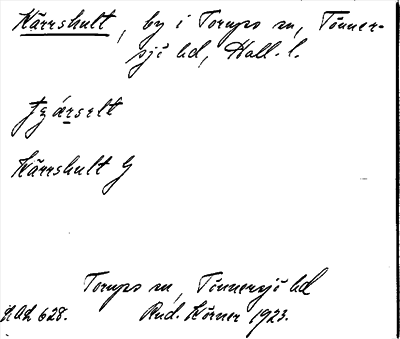 Kärrshult, by i Torups sn, Tönner-
sjö hd, Hall. l.
Kärrshult G
Torups sn, Tönnersjö hd
628. Rud. Körner 1923.